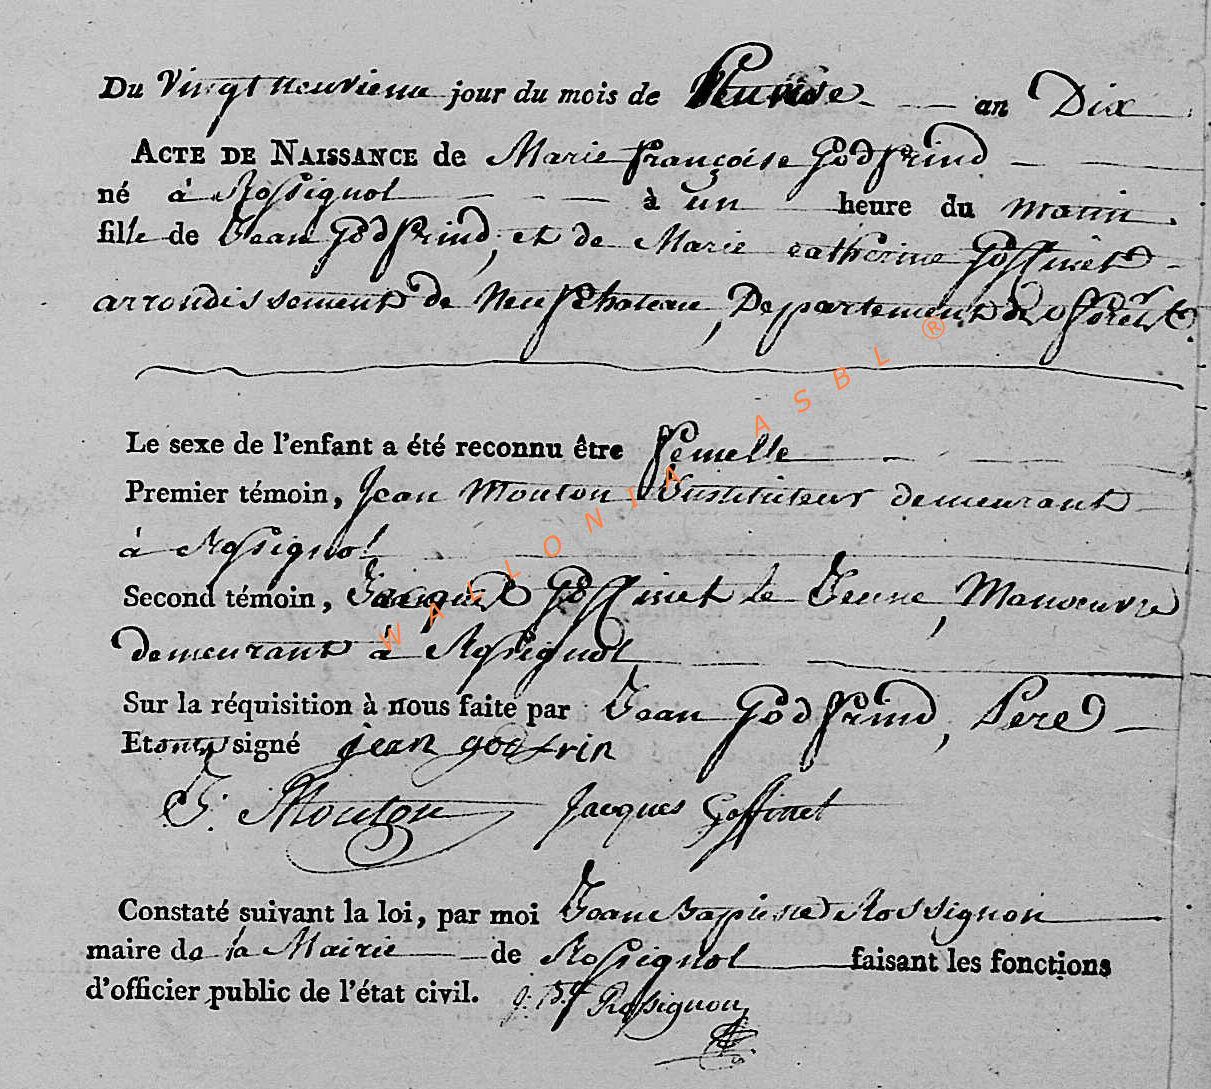 Du Vingt neuvieme jour du mois de Pluviose an Dix
ACTE DE NAISSANCE de Marie françoise Godfrind
né à Rossignol à un heure du matin
fille de Jean Godfrind, et de Marie catherine Goffinet
arrondissement de Neufchateau, Departement des forêts.
Le sexe de l'enfant a été reconnu être femelle
Premier témoin, Jean Mouton Instituteur demeurant
à Rossignol
Second témoin, Jacques Goffinet le Jeune, Manoeuvre
demeurant à Rossignol
Sur la réquisition à nous faite par Jean Godfrind, Pere
Et ont signé jean godfrin
J. Mouton Jacques Goffinet
Constaté suivant la loi, par moi Jean Baptiste Rossignon
maire de la Mairie de Rossignol faisant les fonctions
d'officier public de l'état civil. J. Bte Rossignon
WALLONIA ASBL ®